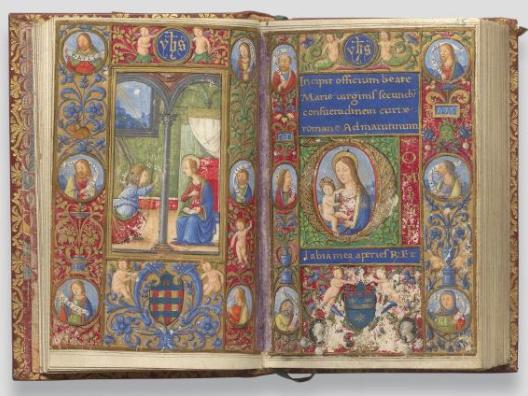 yhs
yhs
Incipit officium beate
Marie virginis secundū
consuetudinem curie
romane Ad matutinum
Labia mea aperies R Et